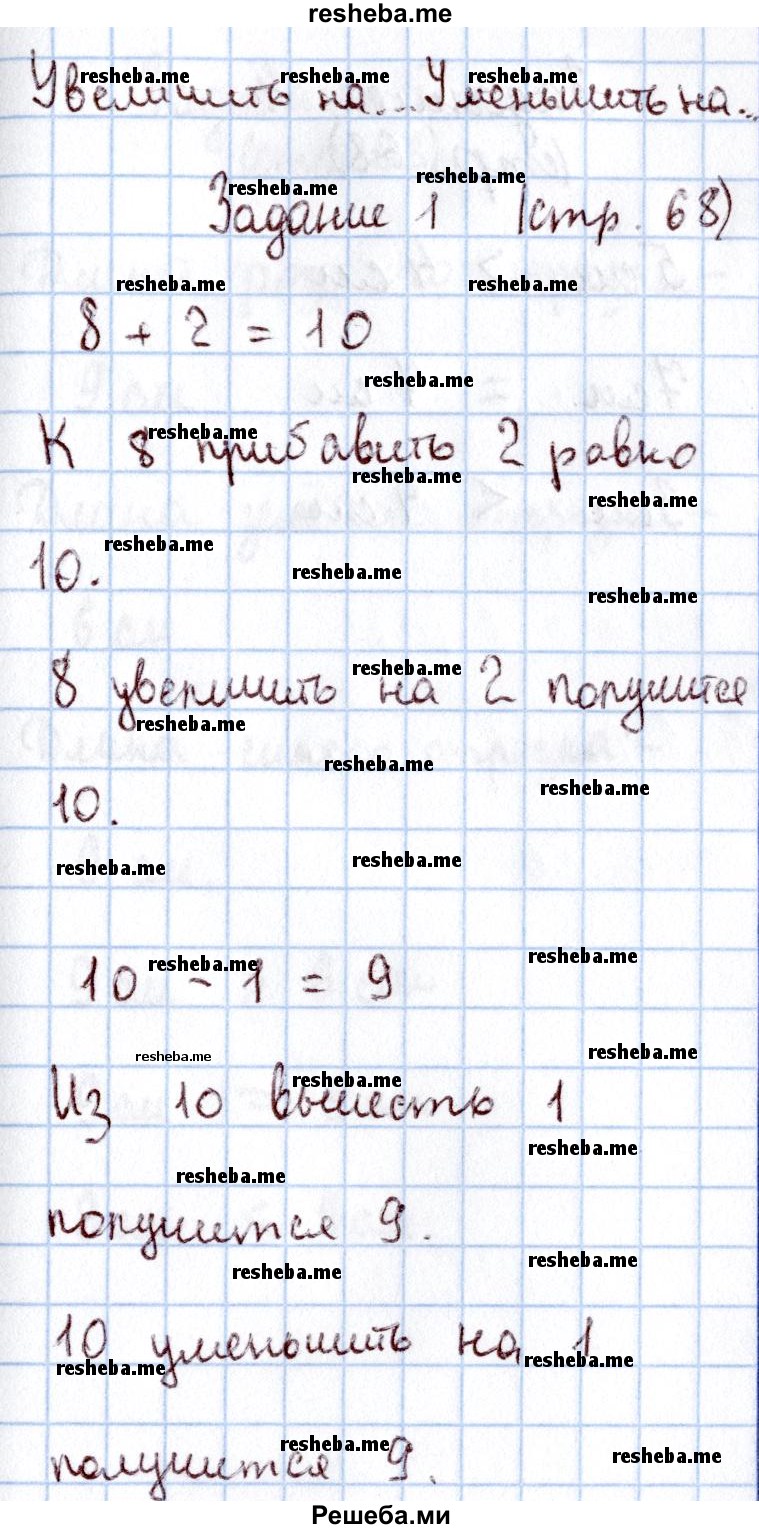 resheba.me
Увеличить на... Уменьшить на...
Задание 1 (стр. 68)
8 + 2 = 10
К 8 прибавить 2 равно
10.
8 увеличить на 2 получится
10.
10 - 1 = 9
Из 10 вычесть 1
получится 9.
10 уменьшить на 1
получится 9.
Решеба.ми